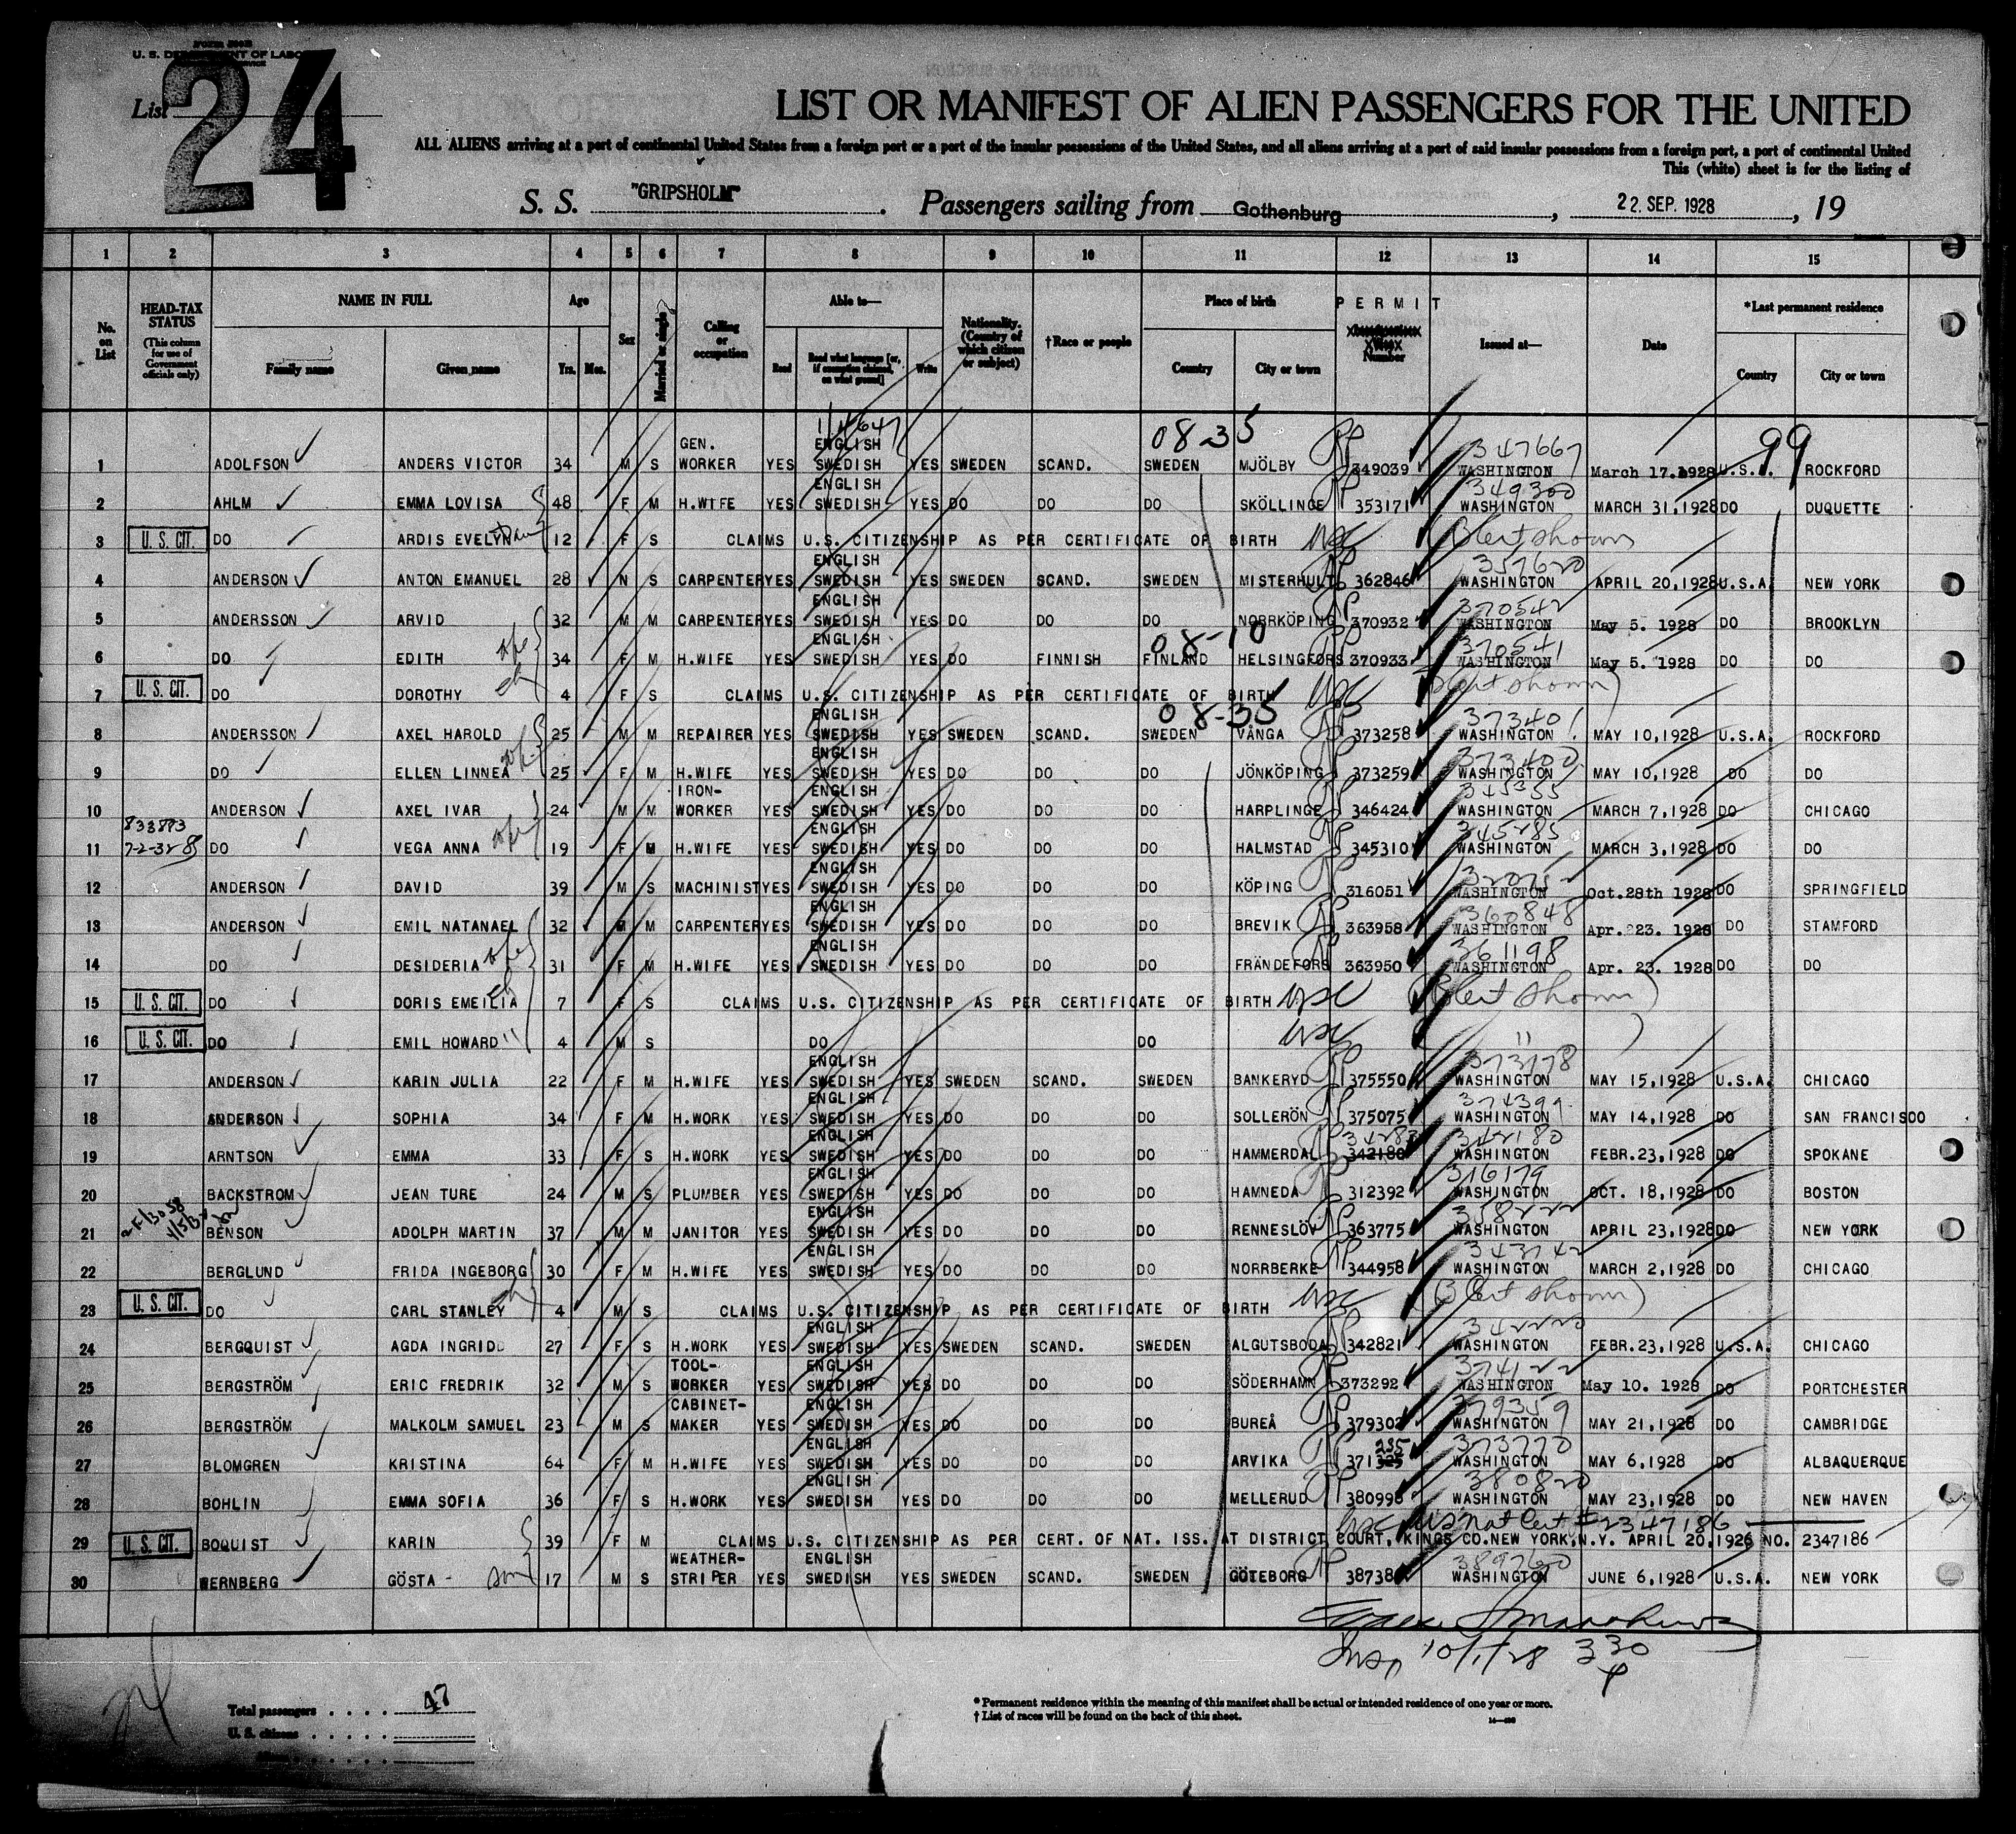 FORM 500B
U. S. DEPARTMENT OF LABOR
24
List
LIST OR MANIFEST OF ALIEN PASSENGERS FOR THE UNITED
ALL ALIENS arriving at a port of continental United States from a foreign port or a port of the insular possessions of the United States, and all aliens arriving at a port of said insular possessions from a foreign port, a port of continental United
This (white) sheet is for the listing of
S. S. "GRIPSHOLM". Passengers sailing from Gothenburg, 22. SEP. 1928, 19
1 2 3 4 5 6 7 8 9 10 11 12 13 14 15
No. on List
HEAD-TAX STATUS
(This column for use of Government officials only)
NAME IN FULL
Family name Given name
Age
Yrs. Mos.
Sex
Married or single
Calling or occupation
Able to—
Read
Read what language [or, if exemption claimed, on what ground]
Write
Nationality. (Country of which citizen or subject)
†Race or people
Place of birth
Country City or town
PERMIT
Number
Issued at—
Date
*Last permanent residence
Country City or town
08-35 99
347667
1 ADOLFSON ANDERS VICTOR 34 M S GEN. WORKER YES ENGLISH SWEDISH YES SWEDEN SCAND. SWEDEN MJÖLBY 349039 WASHINGTON March 17.1928 U.S.A. ROCKFORD
349300
2 AHLM EMMA LOVISA 48 F M H.WIFE YES ENGLISH SWEDISH YES DO DO DO SKÖLLINGE 353171 WASHINGTON MARCH 31,1928 DO DUQUETTE
3 U. S. CIT. DO ARDIS EVELYN 12 F S CLAIMS U.S. CITIZENSHIP AS PER CERTIFICATE OF BIRTH USC (B Cert shown
357620
4 ANDERSON ANTON EMANUEL 28 N S CARPENTER YES ENGLISH SWEDISH YES SWEDEN SCAND. SWEDEN MISTERHULT 362846 WASHINGTON APRIL 20,1928 U.S.A. NEW YORK
370542
5 ANDERSSON ARVID 32 M M CARPENTER YES ENGLISH SWEDISH YES DO DO DO NORRKÖPING 370932 WASHINGTON May 5. 1928 DO BROOKLYN
08-10 370541
6 DO EDITH wife 34 F M H.WIFE YES ENGLISH SWEDISH YES DO FINNISH FINLAND HELSINGFORS 370933 WASHINGTON May 5. 1928 DO DO
7 U. S. CIT. DO DOROTHY ch 4 F S CLAIMS U.S. CITIZENSHIP AS PER CERTIFICATE OF BIRTH USC (B Cert shown)
08-35 373401
8 ANDERSSON AXEL HAROLD 25 M M REPAIRER YES ENGLISH SWEDISH YES SWEDEN SCAND. SWEDEN VÅNGA 373258 WASHINGTON MAY 10,1928 U.S.A. ROCKFORD
373400
9 DO ELLEN LINNEA 25 F M H.WIFE YES ENGLISH SWEDISH YES DO DO DO JÖNKÖPING 373259 WASHINGTON MAY 10,1928 DO DO
345355
10 ANDERSON AXEL IVAR 24 M M IRON-WORKER YES ENGLISH SWEDISH YES DO DO DO HARPLINGE 346424 WASHINGTON MARCH 7,1928 DO CHICAGO
345285
11 DO VEGA ANNA wife 19 F M H.WIFE YES ENGLISH SWEDISH YES DO DO DO HALMSTAD 345310 WASHINGTON MARCH 3,1928 DO DO
12 ANDERSON DAVID 39 M S MACHINIST YES ENGLISH SWEDISH YES DO DO DO KÖPING 316051 WASHINGTON Oct.28th 1928 DO SPRINGFIELD
360848
13 ANDERSON EMIL NATANAEL 32 M M CARPENTER YES ENGLISH SWEDISH YES DO DO DO BREVIK 363958 WASHINGTON Apr. 23. 1928 DO STAMFORD
361198
14 DO DESIDERIA wife 31 F M H.WIFE YES ENGLISH SWEDISH YES DO DO DO FRÄNDEFORS 363950 WASHINGTON Apr. 23. 1928 DO DO
15 U. S. CIT. DO DORIS EMEILIA ch 7 F S CLAIMS U.S. CITIZENSHIP AS PER CERTIFICATE OF BIRTH USC (B Cert shown)
16 U. S. CIT. DO EMIL HOWARD " 4 M S DO DO USC "
373178
17 ANDERSON KARIN JULIA 22 F M H.WIFE YES ENGLISH SWEDISH YES SWEDEN SCAND. SWEDEN BANKERYD 375550 WASHINGTON MAY 15,1928 U.S.A. CHICAGO
374399
18 ANDERSON SOPHIA 34 F M H.WORK YES ENGLISH SWEDISH YES DO DO DO SOLLERÖN 375075 WASHINGTON MAY 14,1928 DO SAN FRANCISCO
342180
19 ARNTSON EMMA 33 F S H.WORK YES ENGLISH SWEDISH YES DO DO DO HAMMERDAL 342180 WASHINGTON FEBR.23,1928 DO SPOKANE
316179
20 BACKSTROM JEAN TURE 24 M S PLUMBER YES ENGLISH SWEDISH YES DO DO DO HAMNEDA 312392 WASHINGTON OCT. 18,1928 DO BOSTON
358222
21 BENSON ADOLPH MARTIN 37 M M JANITOR YES ENGLISH SWEDISH YES DO DO DO RENNESLÖV 363775 WASHINGTON APRIL 23,1928 DO NEW YORK
343742
22 BERGLUND FRIDA INGEBORG 30 F M H.WIFE YES ENGLISH SWEDISH YES DO DO DO NORRBERKE 344958 WASHINGTON MARCH 2,1928 DO CHICAGO
23 U. S. CIT. DO CARL STANLEY ch 4 M S CLAIMS U.S. CITIZENSHIP AS PER CERTIFICATE OF BIRTH USC (B Cert shown)
342220
24 BERGQUIST AGDA INGRID 27 F S H.WORK YES ENGLISH SWEDISH YES SWEDEN SCAND. SWEDEN ALGUTSBODA 342821 WASHINGTON FEBR.23,1928 U.S.A. CHICAGO
374122
25 BERGSTRÖM ERIC FREDRIK 32 M S TOOL-WORKER YES ENGLISH SWEDISH YES DO DO DO SÖDERHAMN 373292 WASHINGTON May 10. 1928 DO PORTCHESTER
379359
26 BERGSTRÖM MALKOLM SAMUEL 23 M S CABINET-MAKER YES ENGLISH SWEDISH YES DO DO DO BUREÅ 379302 WASHINGTON MAY 21,1928 DO CAMBRIDGE
235 373770
27 BLOMGREN KRISTINA 64 F M H.WIFE YES ENGLISH SWEDISH YES DO DO DO ARVIKA 371325 WASHINGTON MAY 6,1928 DO ALBAQUERQUE
380820
28 BOHLIN EMMA SOFIA 36 F S H.WORK YES ENGLISH SWEDISH YES DO DO DO MELLERUD 380995 WASHINGTON MAY 23,1928 DO NEW HAVEN
USC US Nat Cert # 2347186
29 U. S. CIT. BOQUIST KARIN 39 F M CLAIMS U.S. CITIZENSHIP AS PER CERT. OF NAT. ISS. AT DISTRICT COURT, KINGS CO.NEW YORK,N.Y. APRIL 20,1926 NO. 2347186
389760
30 WERNBERG GÖSTA - son 17 M S WEATHER-STRIPER YES ENGLISH SWEDISH YES SWEDEN SCAND. SWEDEN GÖTEBORG 38738 WASHINGTON JUNE 6,1928 U.S.A. NEW YORK
Insp 10/1/28 330
24
Total passengers . . . . 47
U. S. citizens . . . . .
Aliens . . . . . .
* Permanent residence within the meaning of this manifest shall be actual or intended residence of one year or more.
† List of races will be found on the back of this sheet.